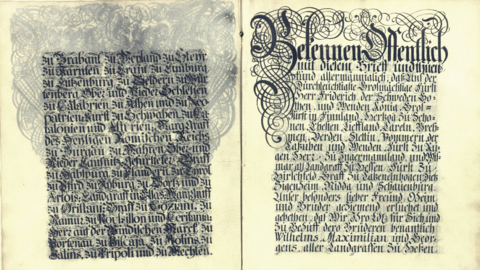 zu Brabant zu Steyr
zu Kärnten zu Crain zu Limburg
zu Lützenburg zu Geldern zu Wür-
tenberg Ober und Nider Schlesien
zu Calabrien zu Athen und zu Neo-
patrien Fürst zu Schwaben zu Ca-
talonien und Marggraf
des Heiligen Römischen Reichs
zu Burgau zu Mähren Ober und
Nieder Lausnitz Gefürsteter Graff
zu Habspurg zu Flandern zu Tyrol
zu Pfird zu Kyburg zu Görtz und zu
Artois Landgraf
zu Graff zu Goziani zu
Namur zu Rousillon und Ceritania
Herr auf der Windischen Marck zu
Portenau zu Biscaja zu Molins zu
Salins zu Tripoli und zu Mecheln.
Bekennen Öffentlich
mit diesem Brief und thuen
kund allermänniglich, daß Uns der
Durchleuchtigste Großmächtige Fürst
Herr Friderich der Schweden Go-
then und Wenden König Groß-
Fürst in Finnland, Hertzog zu Scho-
nen, Ehesten, Lieffland, Carelen, Breh-
men, Verden, Stettin, Pommern der
Cassuben und Wenden, Fürst zu Rü-
gen Herr zu Ingermannland und Wiß-
mar, als Landgraff zu Hessen, Fürst zu
Hirschfeld Graff zu Catzenelnbogen Dietz
Ziegenheim Nidda und Schauenburg
Unser besonders lieber Freund, Oheim
und Bruder geziemend ersuchet und
gebetten, daß Wir Ihro Lbd. für Sich und
zu Behuff dero Brüdern benantlich
Wilhelms, Maximilian und Geor-
gens, aller Landgraffen zu Hessen